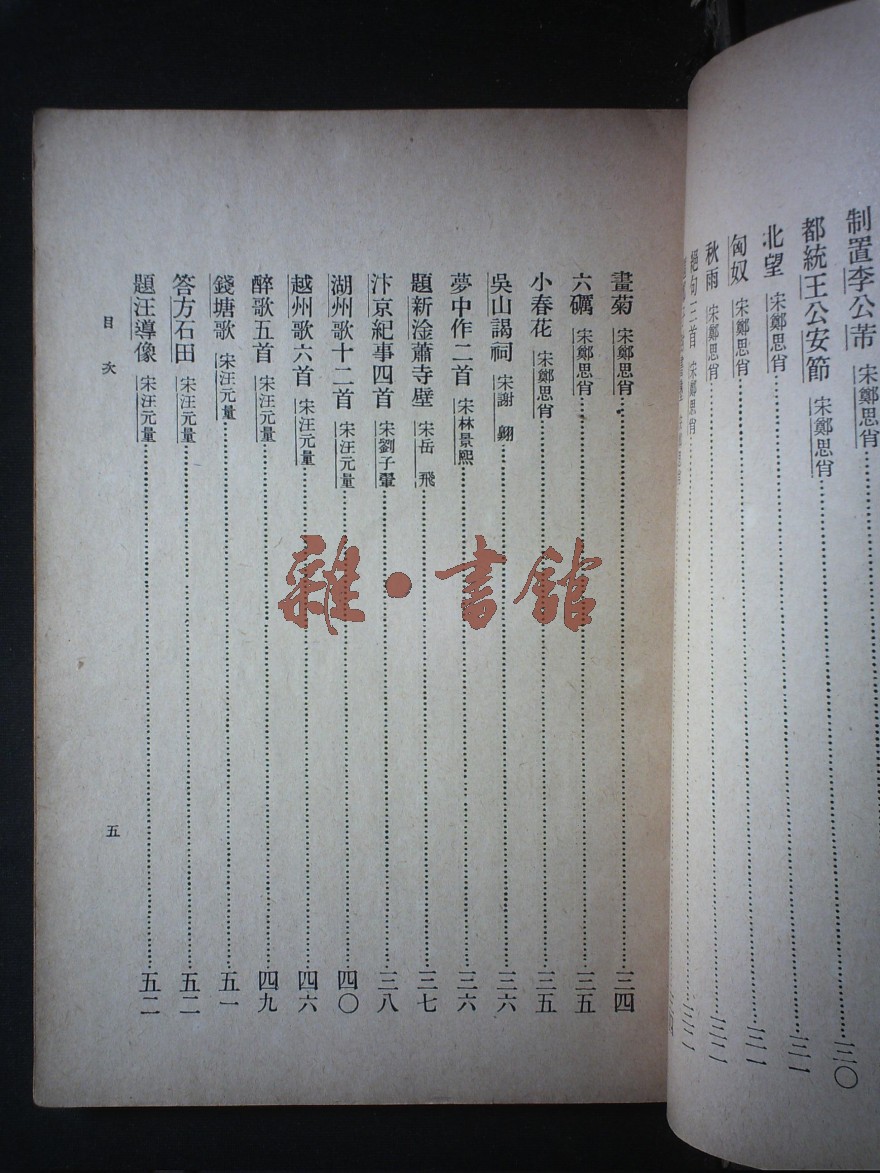 制置李公芾 宋鄭思肖 三〇
都統王公安節 宋鄭思肖 三一
北望 宋鄭思肖 三一
匈奴 宋鄭思肖 三二
秋雨 宋鄭思肖
絕句三首 宋鄭思肖
畫菊 宋鄭思肖 三四
六礪 宋鄭思肖 三五
小春花 宋鄭思肖 三五
吳山謁祠 宋謝翱 三六
夢中作二首 宋林景熙 三六
題新淦蕭寺壁 宋岳飛 三七
汴京紀事四首 宋劉子翬 三八
湖州歌十二首 宋汪元量 四〇
越州歌六首 宋汪元量 四六
醉歌五首 宋汪元量 四九
錢塘歌 宋汪元量 五一
答方石田 宋汪元量 五二
題汪導像 宋汪元量 五二
目次
五
雜·書館